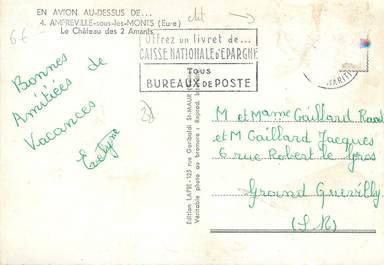 EN AVION AU-DESSUS DE...
4. AMFREVILLE-sous-les-MONTS (Eure)
Le Château des 2 Amants
6 €
Offrez un livret de...
CAISSE NATIONALE D'EPARGNE
TOUS
BUREAUX DE POSTE
MARITI
Bonnes
Amitiées de
Vacances
Evelyne
Edition LAPIE - 125 rue Garibaldi St-MAUR
Véritable photo au bromure - Reprod.
M et Mame Gaillard Raoul
et M Gaillard Jacques
6 rue Robert le Gros
Grand Quevilly
(S.M)